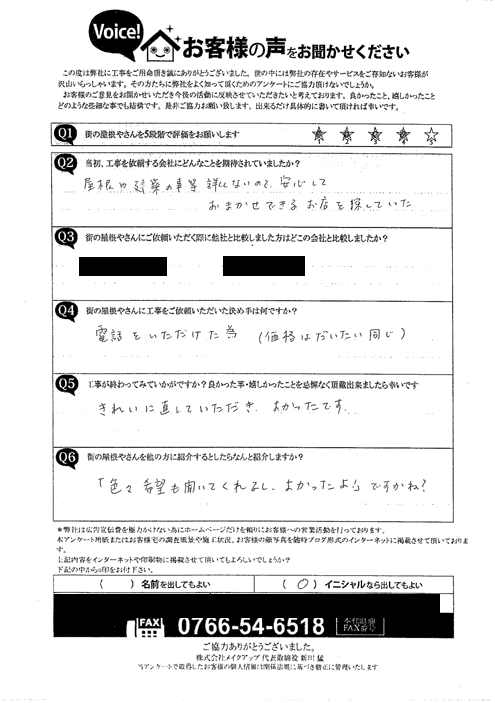 Voice!
お客様の声をお聞かせください
この度は弊社に工事をご用命頂き誠にありがとうございました。世の中には弊社の存在やサービスをご存知ないお客様が
沢山いらっしゃいます。その方たちに弊社をよく知って頂くためのアンケートにご協力頂けないでしょうか。
お客様のご意見をお聞かせいただき今後の活動に反映させていただきたいと考えております。良かったこと、嬉しかったこと
どのような些細な事でも結構です。是非ご協力お願い致します。出来るだけ具体的に書いて頂ければ幸いです。
Q1 街の屋根やさんを5段階で評価をお願いします
1 2 3 4 5
Q2 当初、工事を依頼する会社にどんなことを期待されていましたか?
屋根や建築の事等詳しくないので、安心して
おまかせできるお店を探していた
Q3 街の屋根やさんにご依頼いただく際に他社と比較しました方はどこの会社と比較しましたか?
Q4 街の屋根やさんに工事をご依頼いただいた決め手は何ですか?
電話をいただけた為 (価格はだいたい同じ)
Q5 工事が終わってみていかがですか?良かった事・嬉しかったことを忌憚なく頂戴出来ましたら幸いです
きれいに直していただき、よかったです。
Q6 街の屋根やさんを他の方に紹介するとしたらなんと紹介しますか?
「色々希望も聞いてくれるし、よかったよ!」ですかね?
*弊社は広告宣伝費を極力かけない為にホームページだけを頼りにお客様への営業活動を行っております。
本アンケート用紙またはお客様宅の調査風景や施工状況、お客様の顔写真を随時ブログ形式のインターネットに掲載させて頂いておりま
す。
上記内容をインターネットや印刷物に掲載させて頂いてもよろしいでしょうか?
下記の中から○印をお付下さい。
( ) 名前を出してもよい ( ○ ) イニシャルなら出してもよい
FAX 0766-54-6518 本社直通 FAX番号
ご協力ありがとうございました。
株式会社メイクアップ 代表取締役 新川 猛
当アンケートで取得したお客様の個人情報は関係法規に基づき厳正に管理いたします